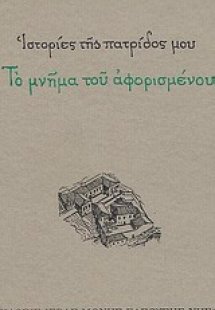 Ἱστορίες τῆς πατρίδος μου
Τὸ μνῆμα τοῦ ἀφορισμένου